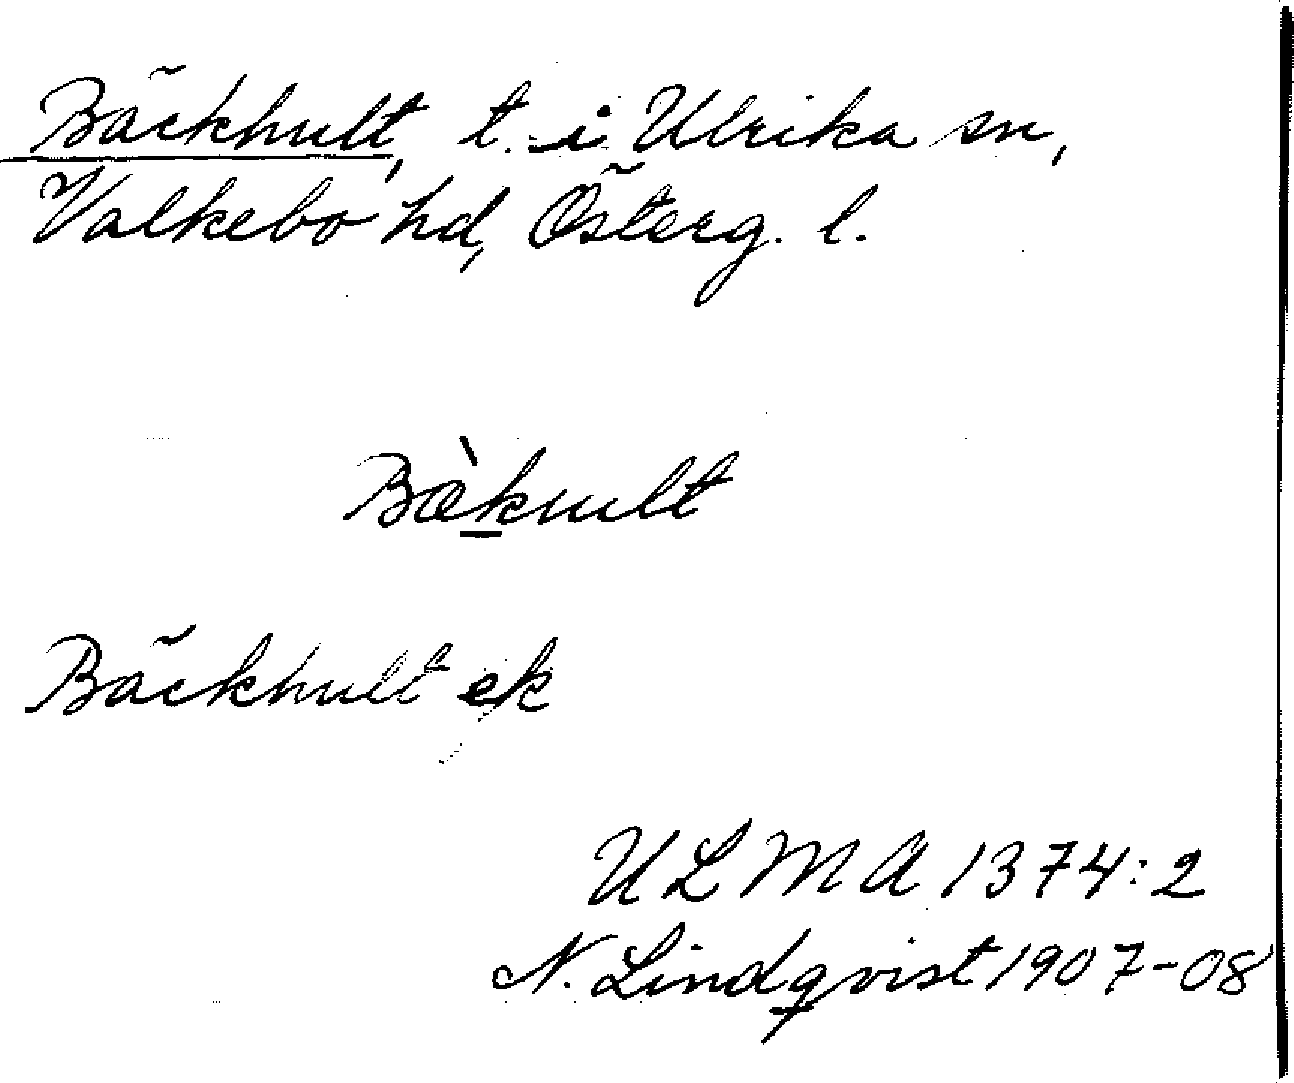 Bäckhult, t. i Ulrika sn,
Valkebo hd, Österg. l.
Bæ̀kult
Bäckhult ek
ULMA 1374:2
N. Lindqvist 1907-08